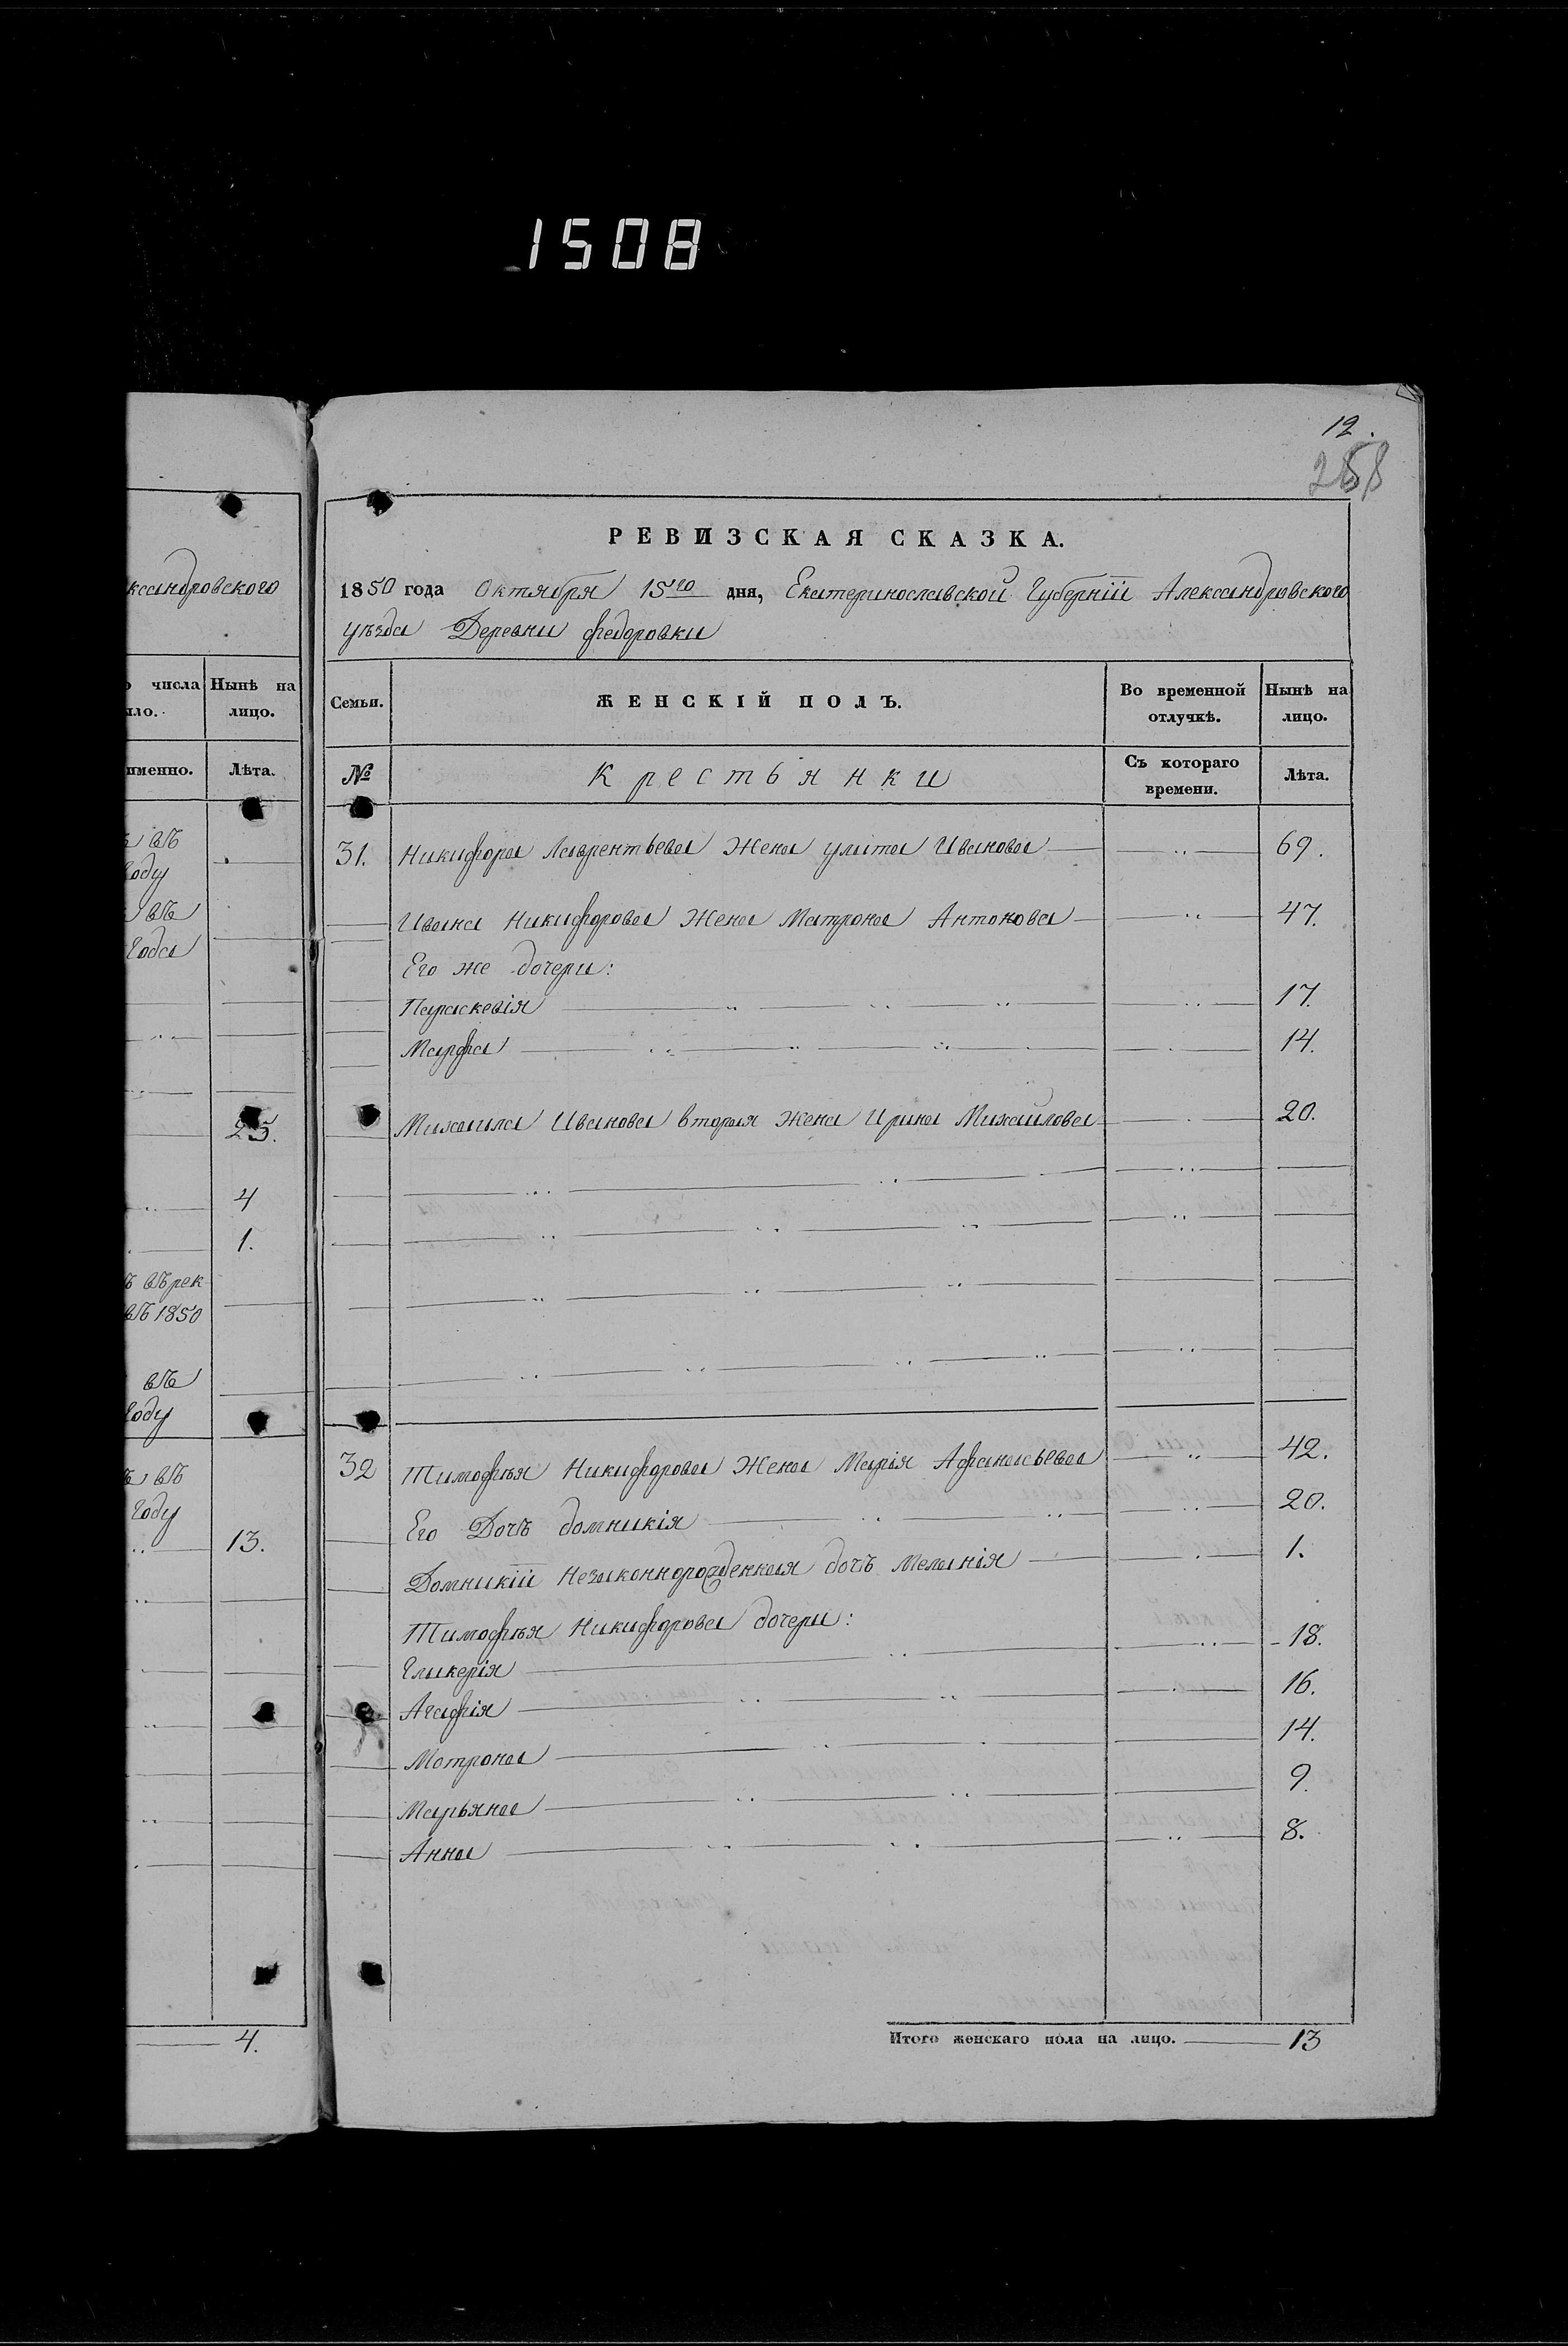 1508
12.
258
ксандровского
числа
Нынѣ на
ло.
лицо.
именно.
Лѣта.
въ
году
въ
года
25.
4
1.
въ рек
въ 1850
въ
году
въ
году
13.
4.
РЕВИЗСКАЯ СКАЗКА.
1850 года Октября 15го дня, Екатеринославской Губерніи Александровского
уѣзда Деревни Федоровки
Семьи.
ЖЕНСКІЙ ПОЛЪ.
Во временной отлучкѣ.
Нынѣ на лицо.
№
Крестьянки
Съ котораго времени.
Лѣта.
31. Никифора Лаврентьева жена улита Иванова 69.
Ивана Никифорова жена Матрона Антонова 47.
Его же дочери:
Параскевія 17.
Марфа 14.
Михаила Иванова вторая жена Ирина Михайлова 20.
32 Тимофѣя Никифорова жена Марія Афанасьева 42.
Его Дочь домникія 20.
Домникіи Незаконнорожденная дочь Меланія 1.
Тимофѣя Никифорова дочери:
Гликерія 18.
Агафія 16.
Мотрона 14.
Марьяна 9.
Анна 8.
Итого женскаго пола на лицо. 13